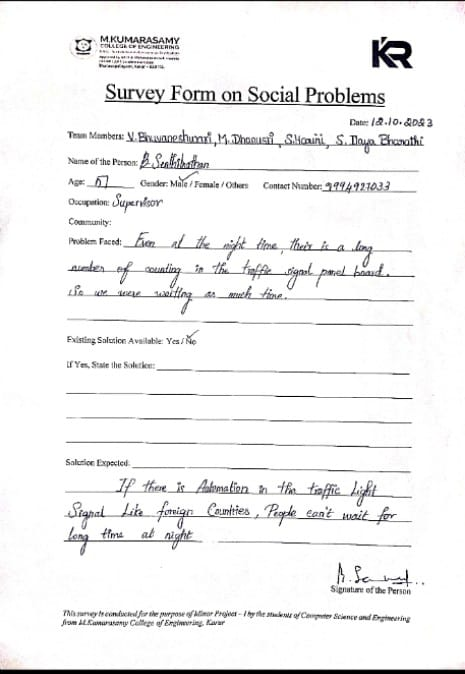 M.KUMARASAMY
COLLEGE OF ENGINEERING
KR
Survey Form on Social Problems
Date: 12.10.2023
Team Members: V. Bhuvaneshwari, M. Dhanusri, S. Harini, S. Daya Bharathi
Name of the Person: B. Senthilnathan
Age: 57 Gender: Male / Female / Others Contact Number: 9994927033
Occupation: Supervisor
Community:
Problem Faced: Even at the night time, their is a long
number of counting in the traffic signal panel board.
So we were waitting as much time.
Existing Solution Available: Yes / No
If Yes, State the Solution:
Solution Expected:
If there is Automation in the traffic Light
Signal Like foreign Counties, People can't wait for
long time at night
Signature of the Person
This survey is conducted for the purpose of Minor Project – I by the students of Computer Science and Engineering
from M.Kumarasamy College of Engineering, Karur